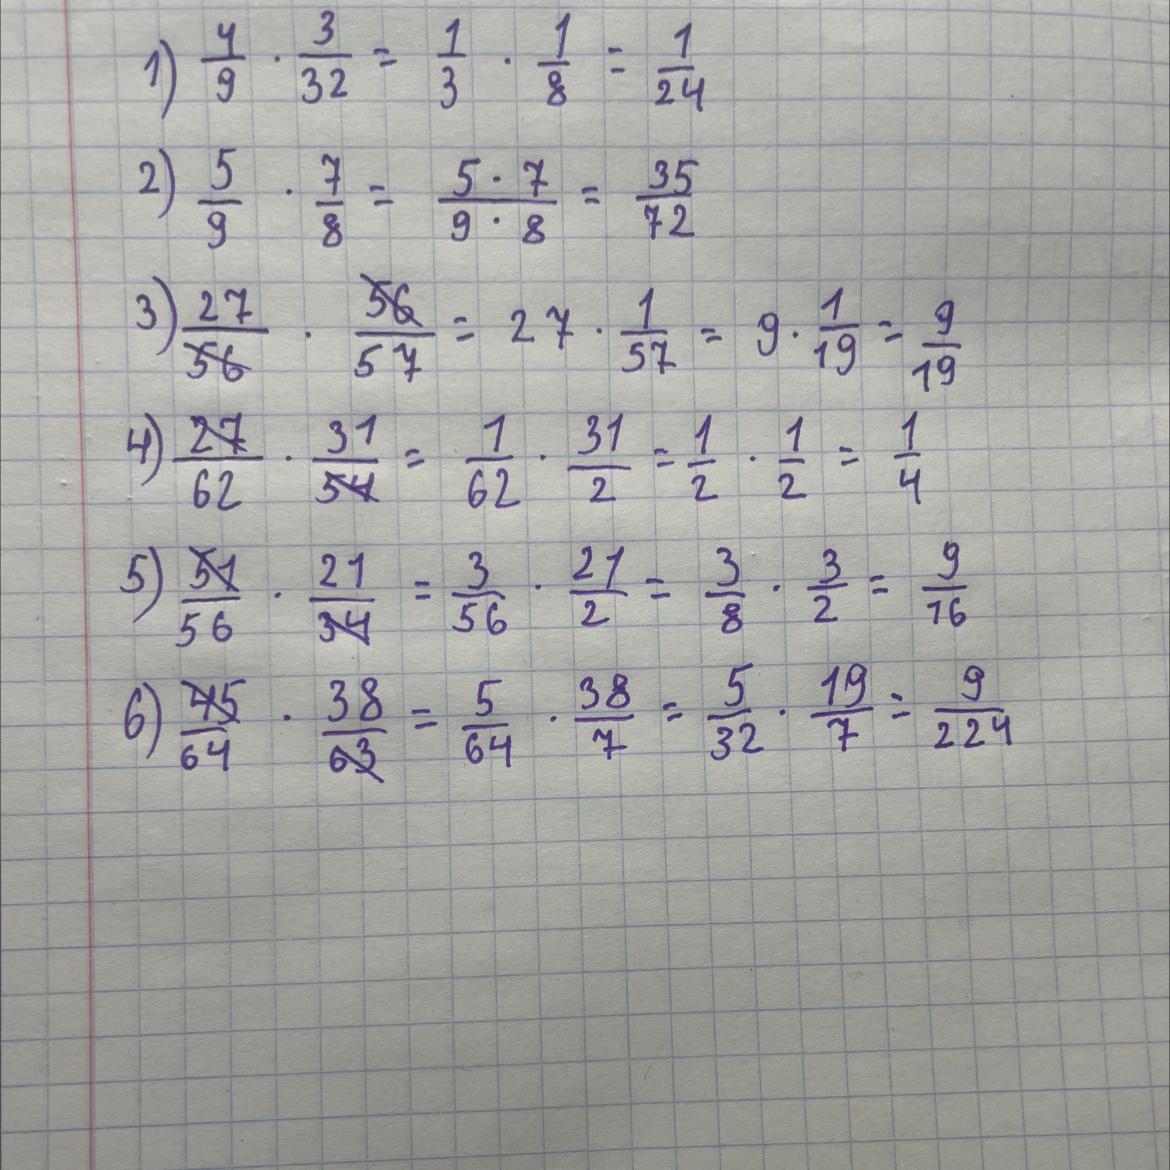 1) 4/9 · 3/32 = 1/3 · 1/8 = 1/24
2) 5/9 · 7/8 = 5·7/9·8 = 35/72
3) 27/56 · 56/57 = 27 · 1/57 = 9 · 1/19 = 9/19
4) 27/62 · 31/54 = 1/62 · 31/2 = 1/2 · 1/2 = 1/4
5) 51/56 · 21/34 = 3/56 · 21/2 = 3/8 · 3/2 = 9/16
6) 45/64 · 38/63 = 5/64 · 38/7 = 5/32 · 19/7 = 9/224